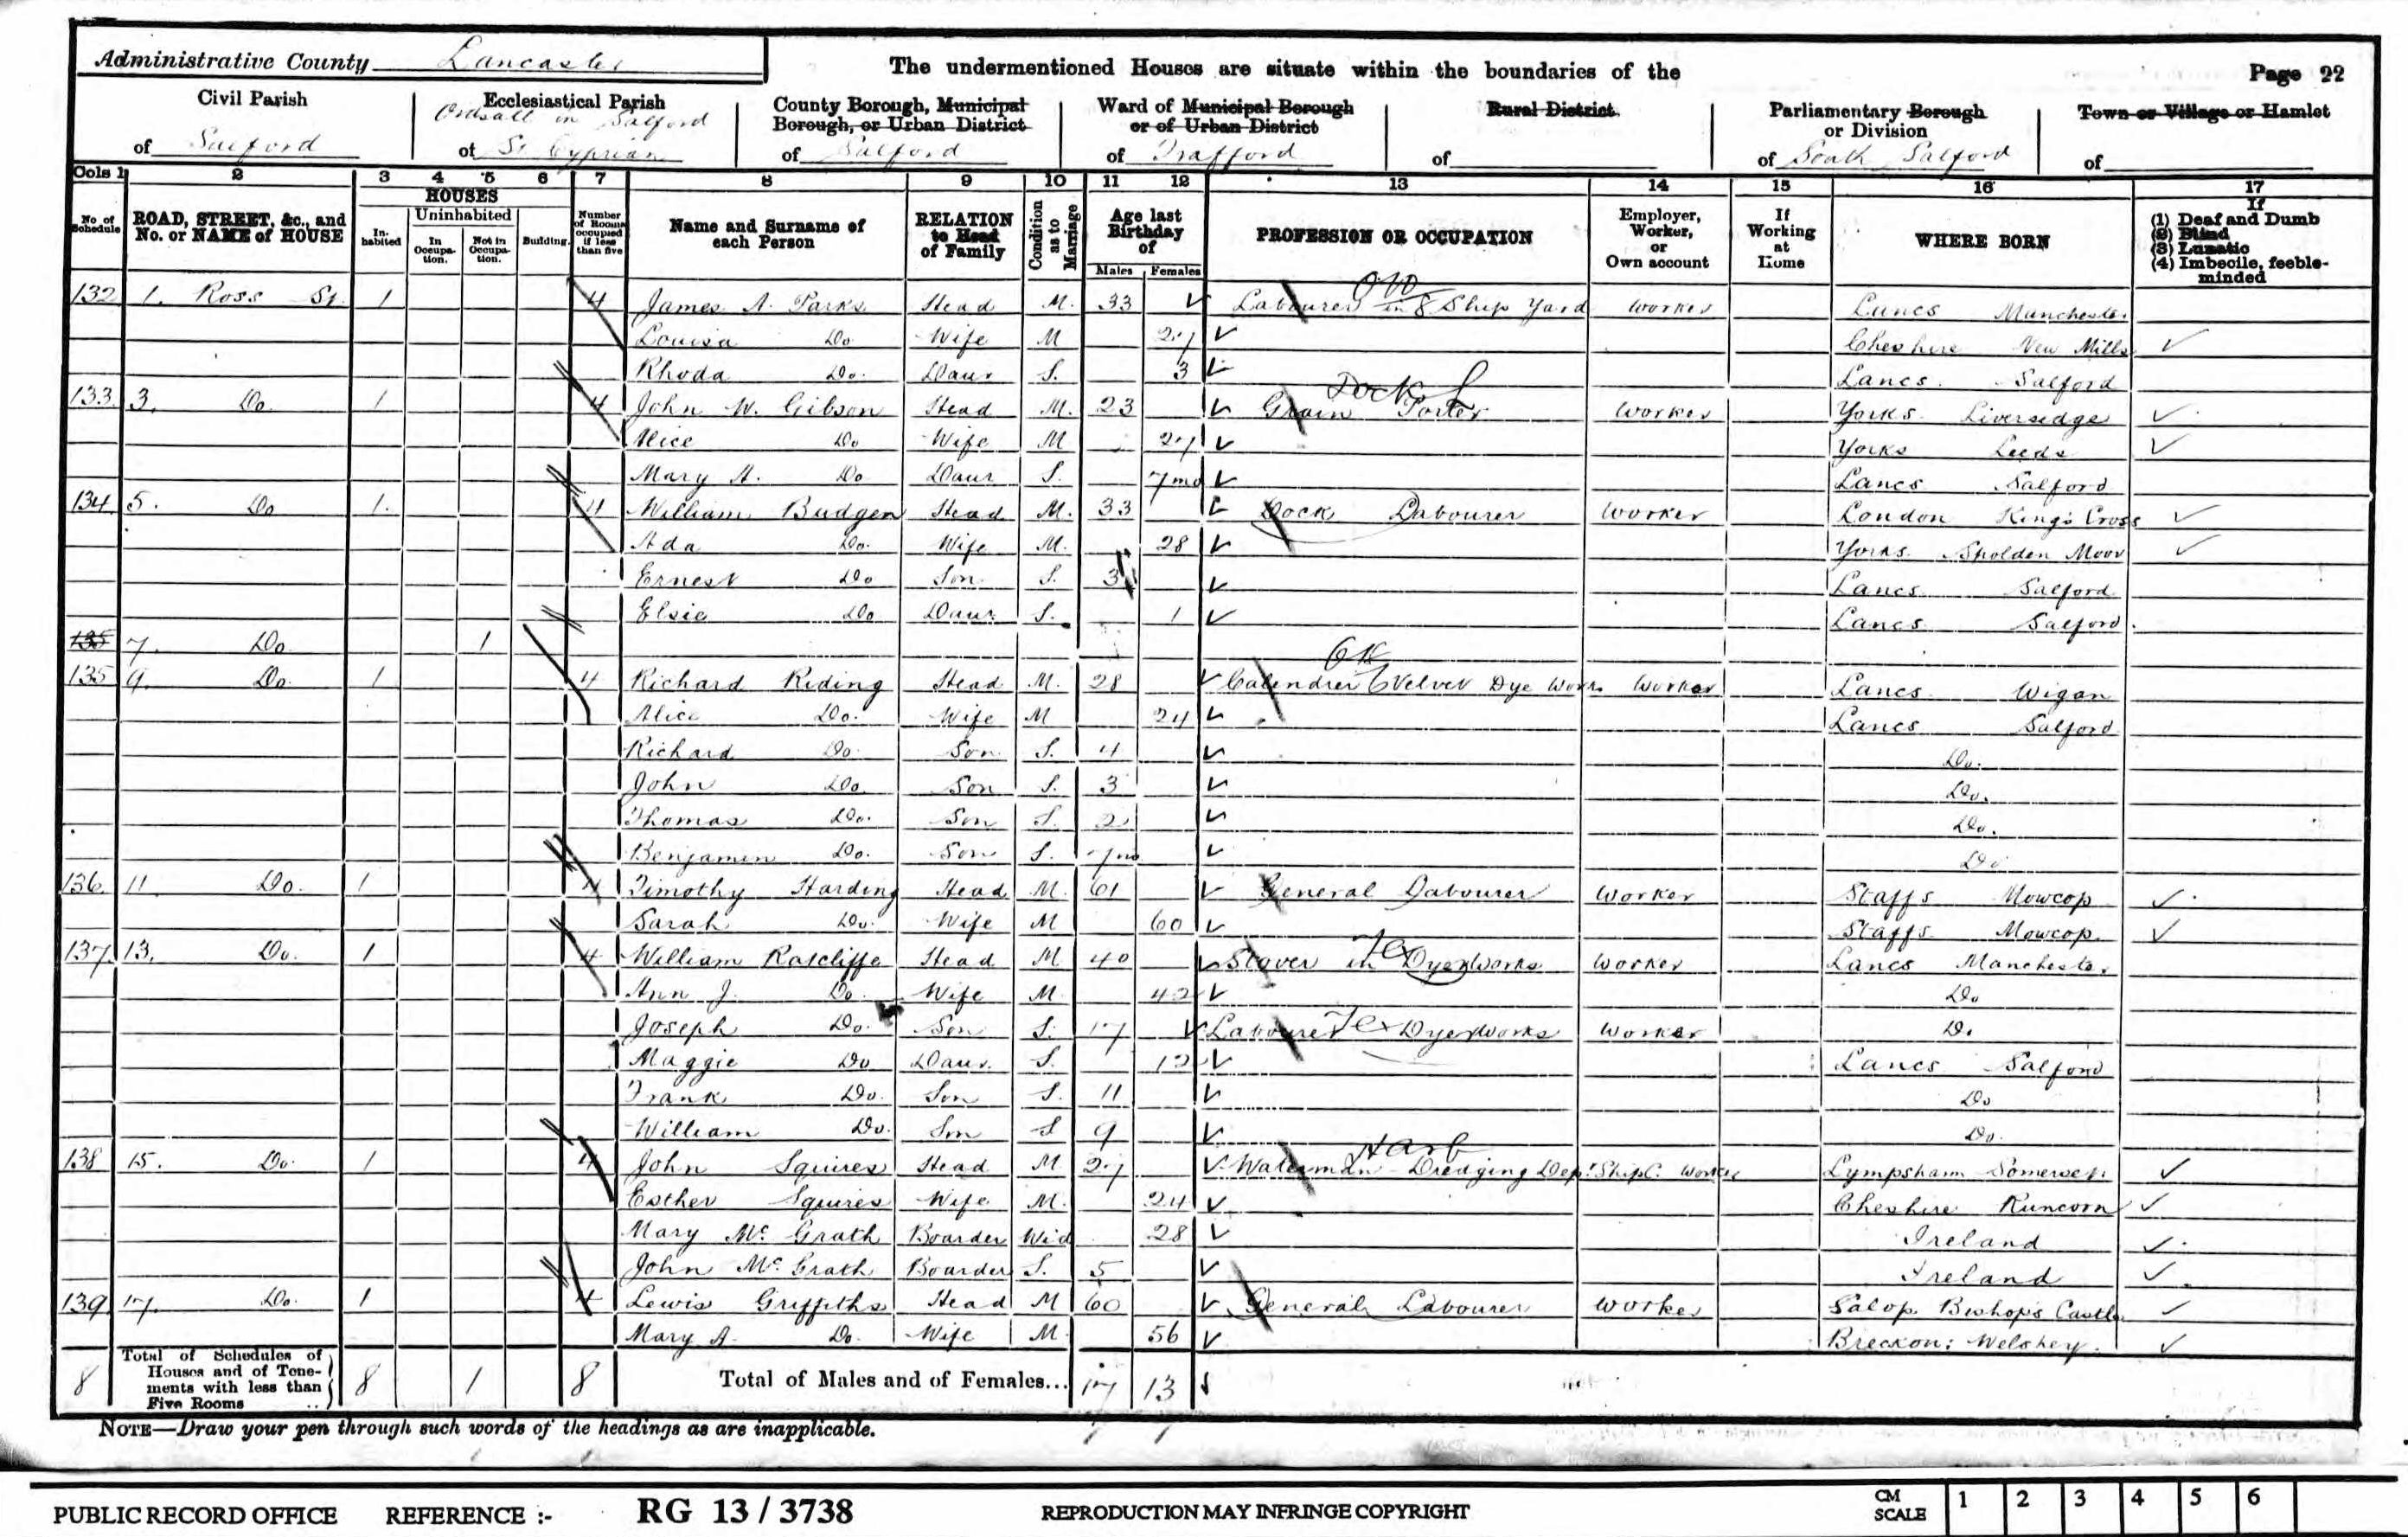 Administrative County Lancaster
The undermentioned Houses are situate within the boundaries of the
Page 22
Civil Parish of Salford
Ecclesiastical Parish of Ordsall in Salford St Cyprian
County Borough, Municipal Borough, or Urban District of Salford
Ward of Municipal Borough or of Urban District of Trafford
Rural District of
Parliamentary Borough or Division of South Salford
Town or Village or Hamlet of
Cols 1 2 3 4 5 6 7 8 9 10 11 12 13 14 15 16 17
No. of Schedule
ROAD, STREET, &c., and No. or NAME of HOUSE
HOUSES
Inhabited
Uninhabited
In Occupation.
Not in Occupation.
Building.
Number of Rooms occupied if less than five
Name and Surname of each Person
RELATION to Head of Family
Condition as to Marriage
Age last Birthday of
Males Females
PROFESSION OR OCCUPATION
Employer, Worker, or Own account
If Working at Home
WHERE BORN
If
(1) Deaf and Dumb
(2) Blind
(3) Lunatic
(4) Imbecile, feeble-minded
132 1. Ross St. 1 4 James A. Parks Head M. 33 Labourer in Ship Yard Worker Lancs Manchester
Louisa Do Wife M 27 Cheshire New Mills
Rhoda Do. Daur S. 3 Lancs. Salford
Dock L
133 3. Do. 1 4 John W. Gibson Head M. 23 Grain Porter Worker Yorks. Liversedge
Alice Do Wife M 27 Yorks Leeds
Mary A. Do Daur S. 7 mo Lancs Salford
134 5. Do 1. 4 William Budgen Head M. 33 Dock Labourer Worker London King's Cross
Ada Do. Wife M. 28 Yorks. Spolden Moor
Ernest Do Son S. 3 Lancs. Salford
Elsie Do Daur S. 1 Lancs. Salford.
135 7. Do 1
135 9. Do. 1 4 Richard Riding Head M. 28 Calendrer Velvet Dye Works Worker Lancs. Wigan
Alice Do. Wife M 24 Lancs Salford
Richard Do. Son S. 4 Do.
John Do. Son S. 3 Do.
Thomas Do. Son S. 2 Do.
Benjamin Do. Son S. 7 mo Do
136. 11 Do. 1 4 Timothy Harding Head M. 61 General Labourer Worker Staffs Mowcop
Sarah Do. Wife M 60 Staffs. Mowcop.
Tex
137. 13. Do. 1 4 William Ratcliffe Head M 40 Stover in Dyeworks Worker Lancs Manchester
Ann J. Do. Wife M. 42 Do
Joseph Do. Son S. 17 Labourer Tex Dyeworks Worker Do.
Maggie Do Daur. S. 12 Lancs Salford
Frank Do. Son S. 11 Do
William Do. Son S 9 Do.
Harb
138 15. Do. 1 4 John Squires Head M. 27 Waterman Dredging Dept Ship C. Worker Lympsham Somerset
Esther Squires Wife M. 24 Cheshire Runcorn
Mary Mc Grath Boarder Wid 28 Ireland
John Mc Grath Boarder S. 5 Ireland
139. 17. Do. 1 4 Lewis Griffiths Head M 60 General Labourer Worker Salop. Bishop's Castle
Mary A. Do. Wife M. 56 Breckon: Welshey.
8 Total of Schedules of Houses and of Tenements with less than Five Rooms 8 1 8 Total of Males and of Females... 17 13
NOTE—Draw your pen through such words of the headings as are inapplicable.
PUBLIC RECORD OFFICE REFERENCE :- RG 13 / 3738 REPRODUCTION MAY INFRINGE COPYRIGHT CM SCALE 1 2 3 4 5 6